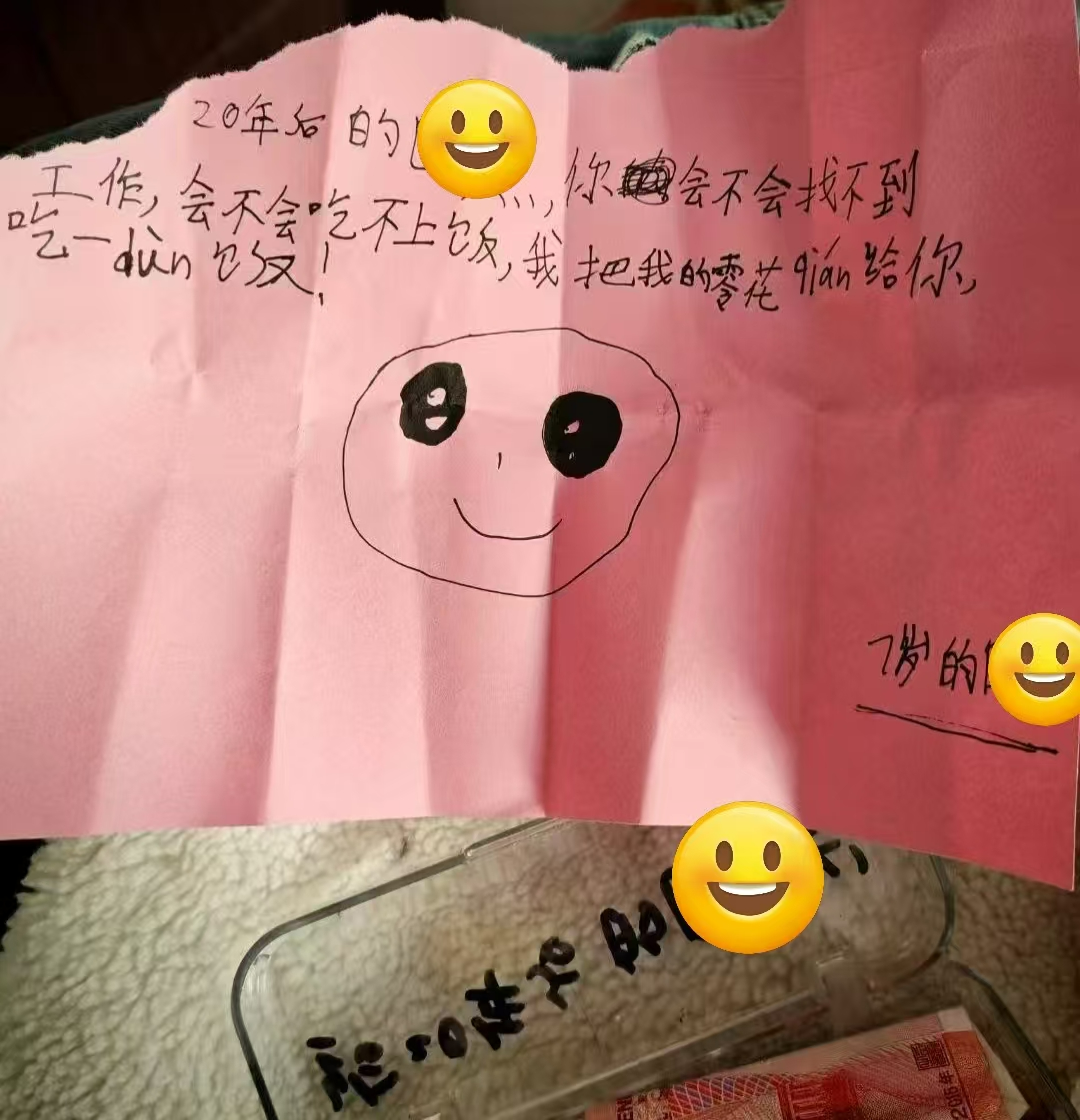 20年后的
灬,你会不会找不到
工作,会不会吃不上饭,我把我的零花qián给你,
吃一dùn饭!
7岁的
20年